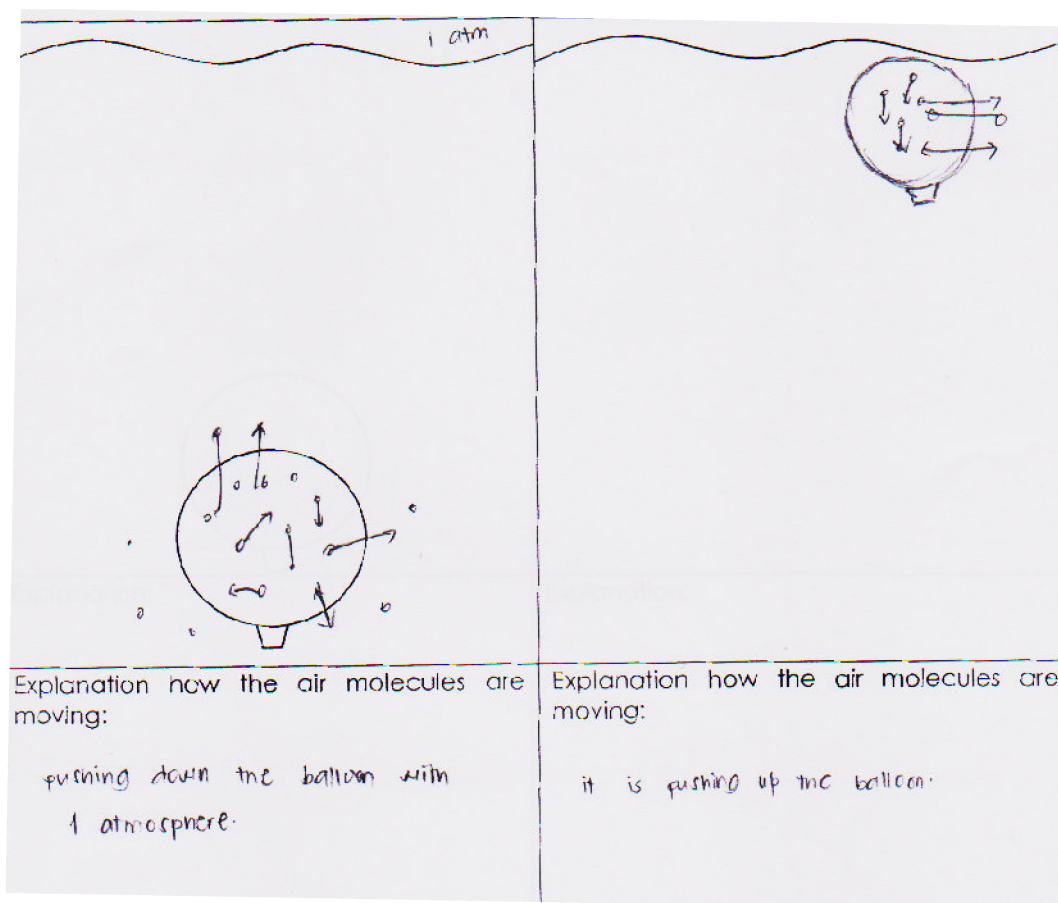 1 atm
Explanation how the air molecules are
moving:
pushing down the balloon with
1 atmosphere.
Explanation how the air molecules are
moving:
it is pushing up the balloon.